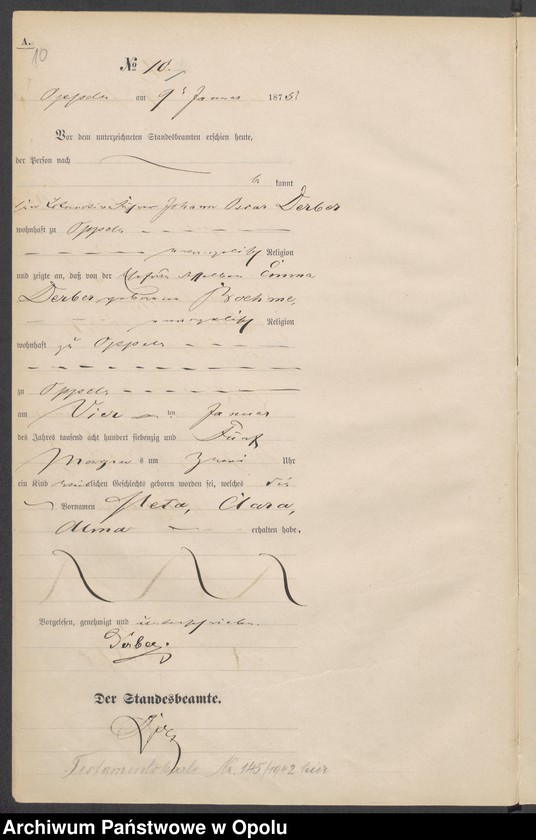 A.
10
No 10.
Oppeln am 9t Januar 1875
Vor dem unterzeichneten Standesbeamten erschien heute,
der Person nach
kannt
Johann Oscar Derber
wohnhaft zu Oppeln
evangelisch Religion
und zeigte an, daß von der Ehefrau Emma
Derber geborene Boehme,
evangelisch Religion
wohnhaft zu Oppeln
zu Oppeln
am Vier ten Januar
des Jahres tausend acht hundert siebenzig und Fünf
Morgens um Zwei Uhr
ein Kind weiblichen Geschlechts geboren worden sei, welches die
Vornamen Meta, Clara,
Alma erhalten habe.
Vorgelesen, genehmigt und unterschrieben.
Derber.
Der Standesbeamte.
Testamentskarte Nr. 145/1942 hier
Archiwum Państwowe w Opolu